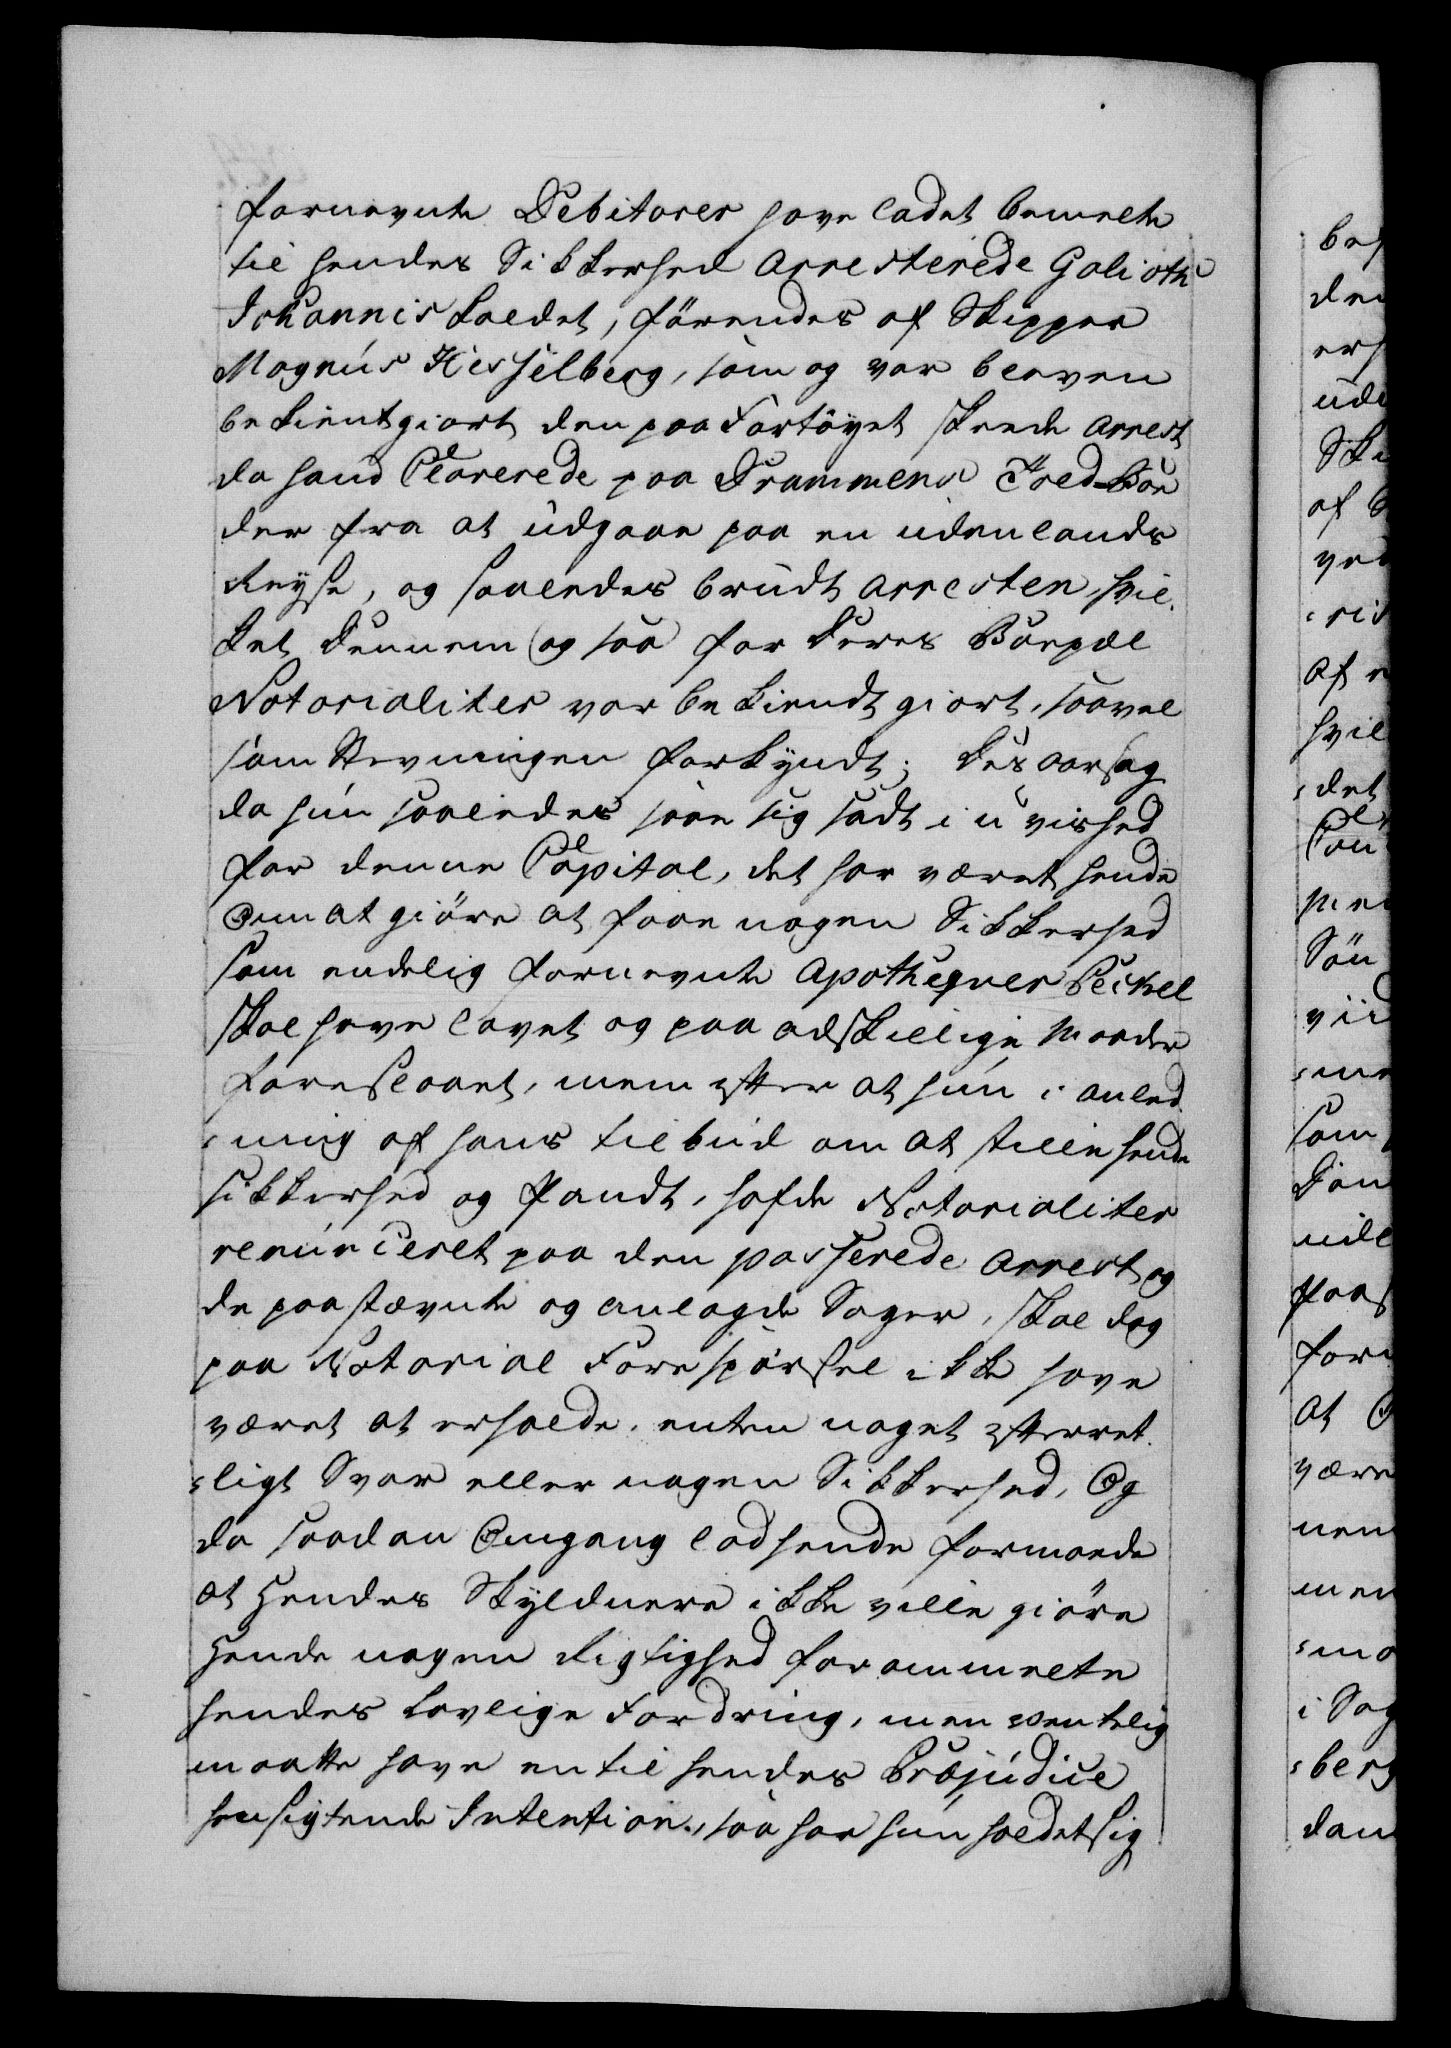 fornevnte Debitorer have ladet bemelte
til hendes Sikkerhed Arresterede Galioth
Johannis kaldet, förendes af Skipper
Magnus Hesselberg, som og var bleven
bekientgiort den paa Fartöyet skeede Arrest
da hand Clarerede paa Drammens Toed-Boe
der fra at udgaae paa en udenlands
Reyse, og saaledes brudt Arresten, hvil-
ket Dennem (og saa) for Deres Börpæl
Notorialiter var bekiendt giort, saavel
som Stevningen forkyndt; Des aarsag
da hun saaledes saae sig sadt i uvished
for denne Capital, det har været hende
Om at giöre at faae nogen Sikkerhed
som endelig fornevnte Apotheqver Peckel
skal have lovet og paa adskillige Maader
foreslaaet, men efter at hun i anled-
ning af hans tilbud om at stille hende
sikkerhed og Pandt, hafde Notorialiter
renunceret paa den passerede Arrest og
de paastævnte og anlagde Sager, skal dog
paa Notorial Forespörsel ikke have
været at erholde, enten noget efterret-
ligt Svar eller nogen Sikkerhed, Og
da saadan Omgang lod hende formoede
at Hendes Skyldnere ikke ville giöre
Hende nogen Rigtighed for ommelte
hendes lovlige Fordring, men ventelig
maatte have en til hendes Præjudice
hensigtende Intention, saa har hun holdet sig